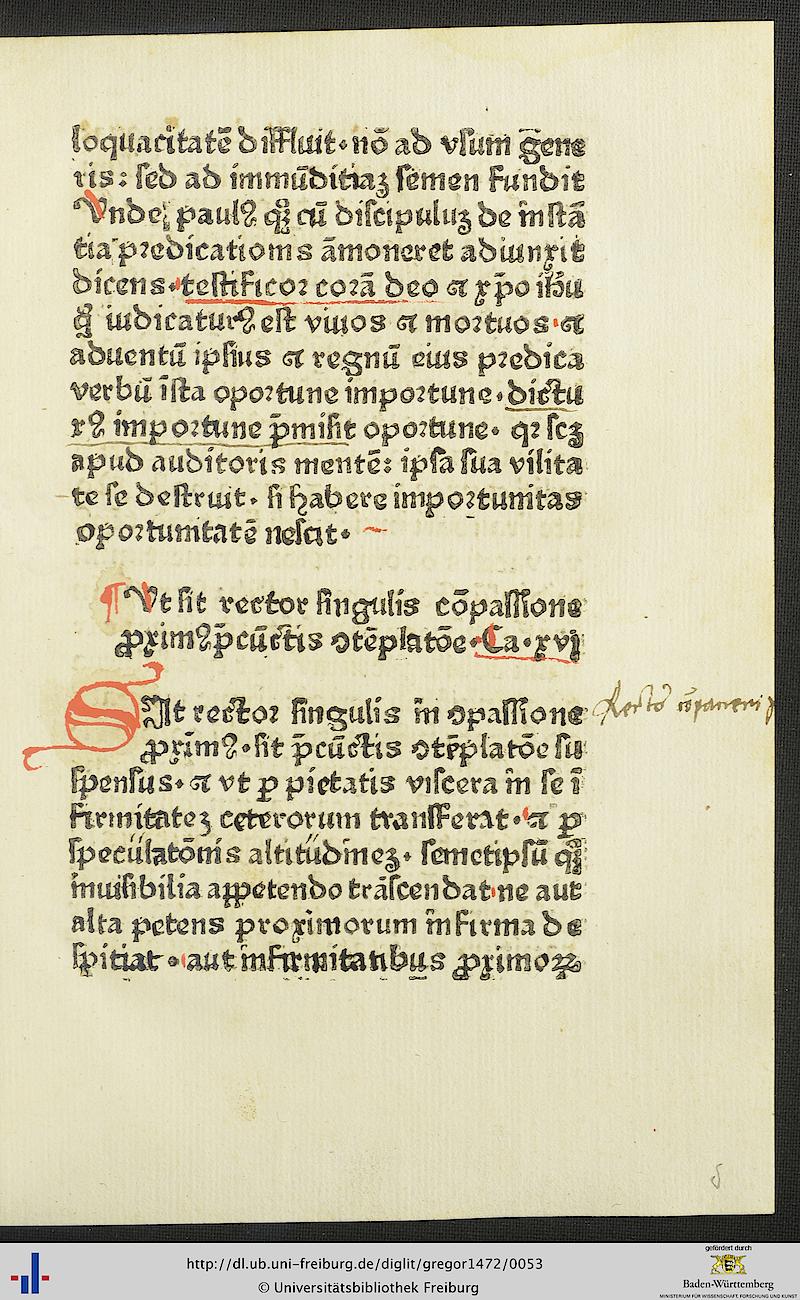 loquacitatē diffluit· nō ad vsum geñe
ris: sed ad immūditiaꝫ semen fundit
Vnde paulꝰ qꝫ cū discipuluꝫ de instā
tia predicationis āmoneret adiunxit
dicens· testificor corā deo et xp̄o ih̄u
q̄ iudicaturꝰ est viuos et mortuos· et
aduentū ipsius et regnū eius predica
verbū ista oportune importune· dictu
rꝰ importune p̄misit oportune· qꝛ scꝫ
apud auditoris mentē: ipsa sua vilita
te se destruit· si habere importunitas
oportunitatē nescit·
¶ Vt sit rector singulis cōpassione
ꝓximꝰ p̄ cūctis ꝯtēplatōe· Ca· xvj
SIt rector singulis in ꝯpassione
ꝓximꝰ· sit p̄ cūctis ꝯtēplatōe su
spensus· et vt ꝑ pietatis viscera in se ī
firmitateꝫ ceterorum transferat· et ꝑ
speculatōnis altitudineꝫ· semetipsū qꝫ
inuisibilia appetendo trāscendat· ne aut
alta petens proximorum infirma de
spitiat· aut infirmitatibus ꝓximoꝝ
Recto
http://dl.ub.uni-freiburg.de/diglit/gregor1472/0053
© Universitätsbibliothek Freiburg
gefördert durch
Baden-Württemberg
MINISTERIUM FÜR WISSENSCHAFT, FORSCHUNG UND KUNST